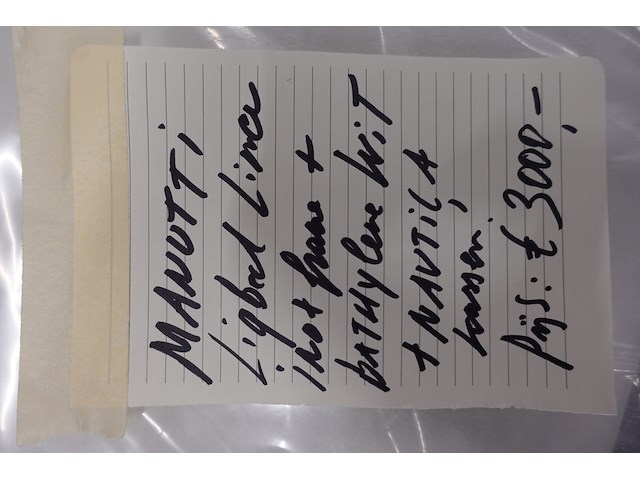 MANUTTI
Ligbed Liner
inox frame +
BATHYLENE WIT
+ NAUTICA
kussen.
Prijs: € 3000,-